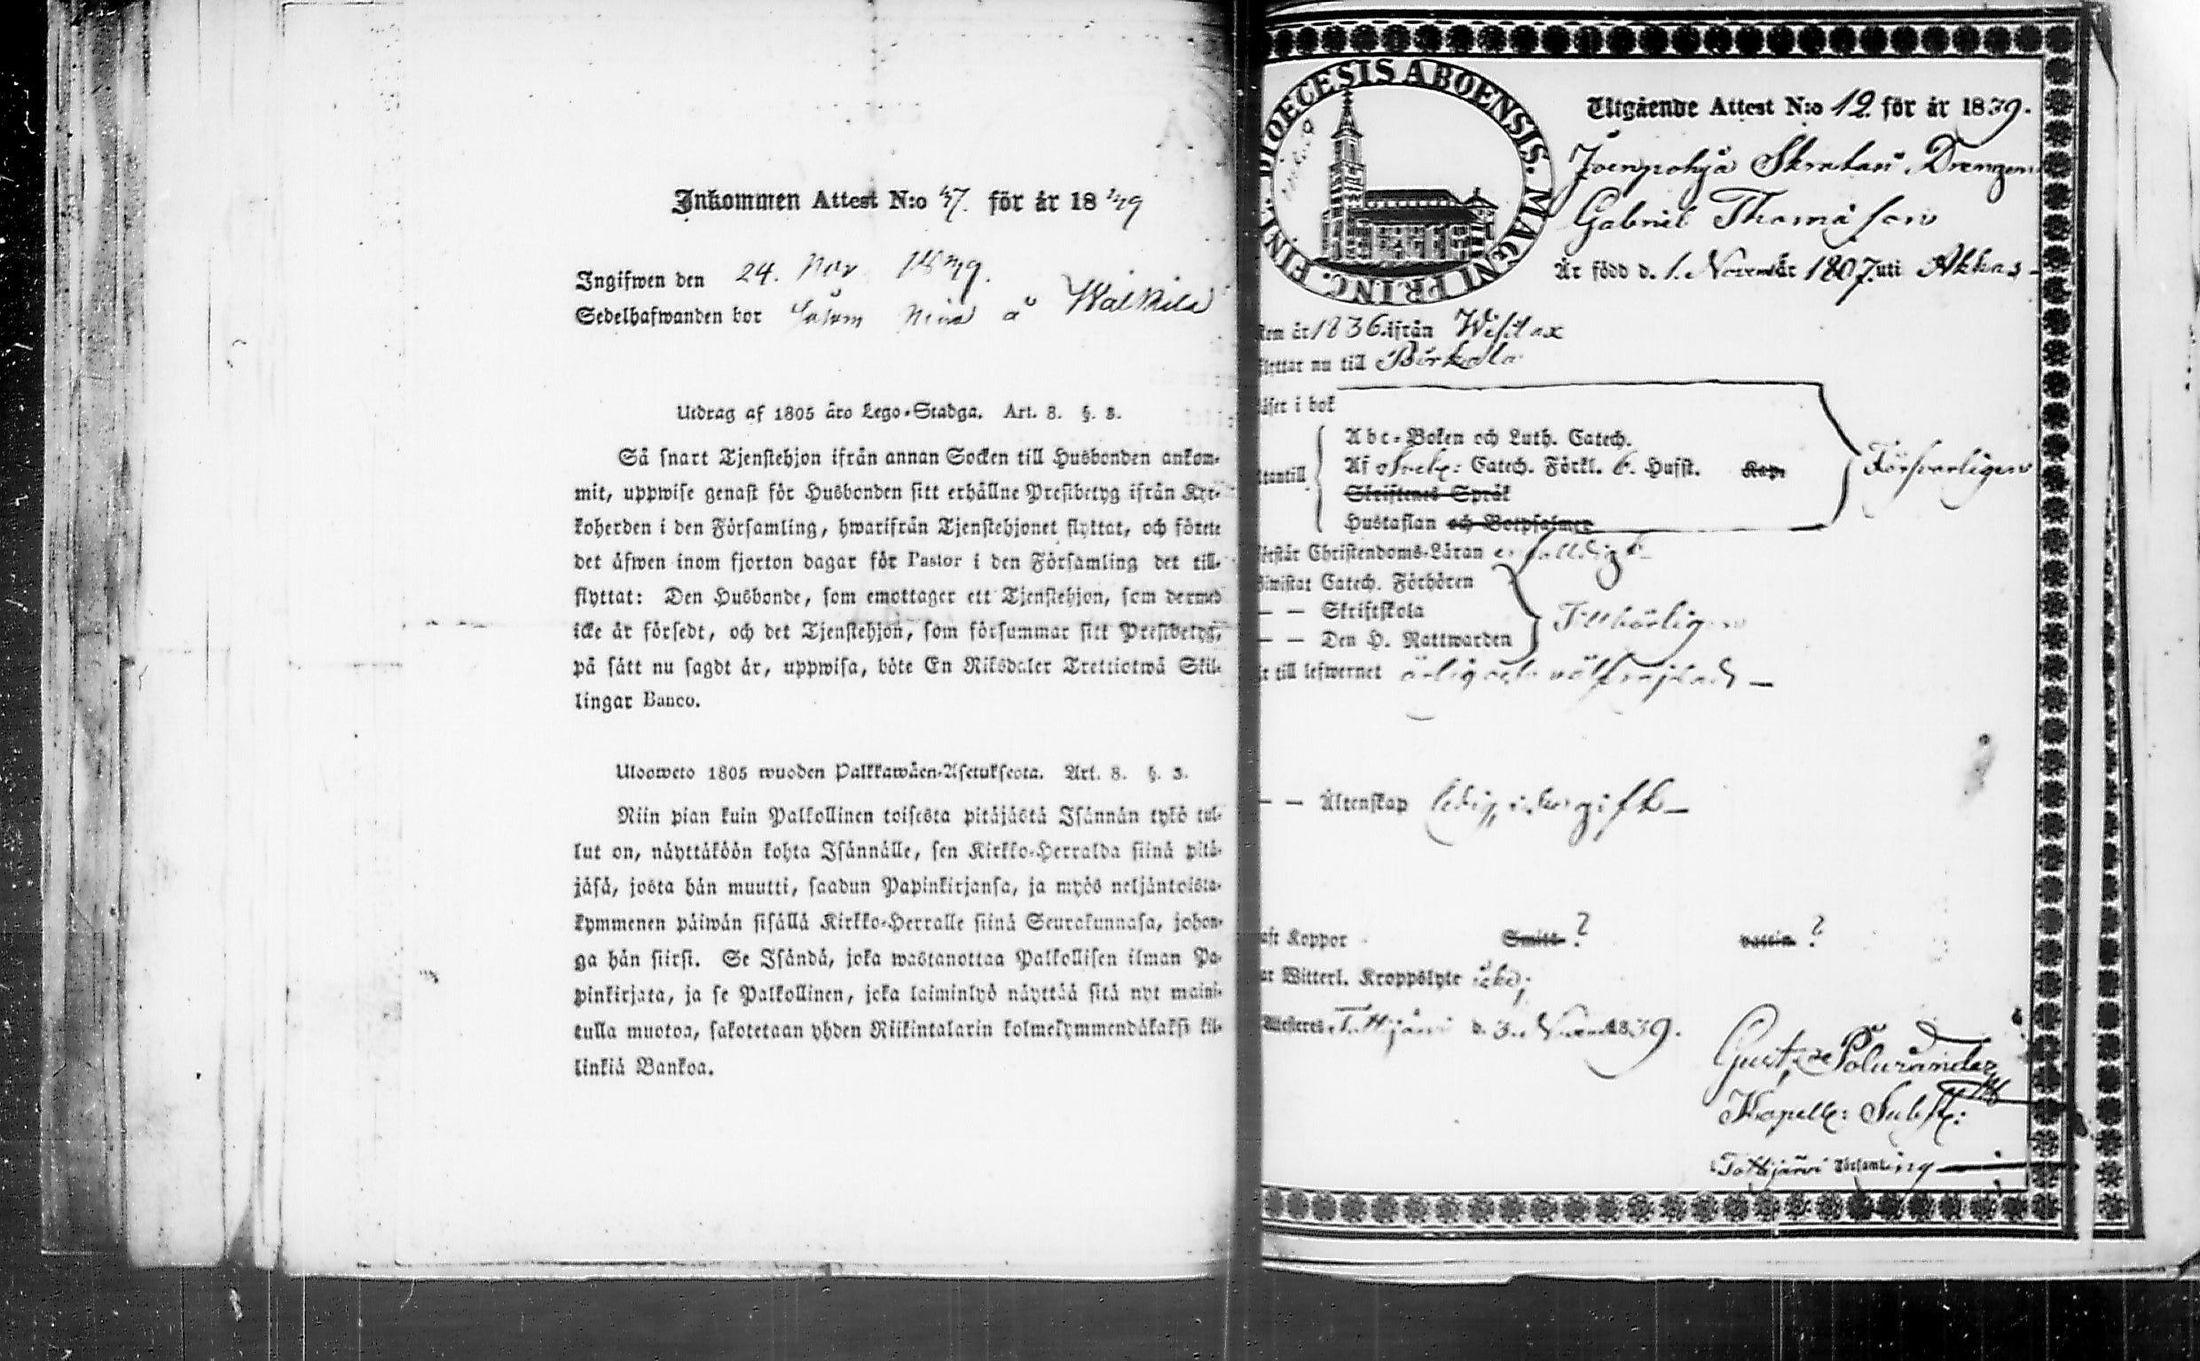 Inkommen Attest N:o 47. för år 1839
Ingifwen den 24. Nov 1839.
Sedelhafwanden bor å Walkila
Utdrag af 1805 års Lego-Stadga. Art. 8. §. 3.
Så snart Tjenstehjon ifrån annan Socken till Husbonden ankom-
mit, uppwise genast för Husbonden sitt erhållne Prestbetyg ifrån Kyr-
koherden i den Församling, hwarifrån Tjenstehjonet flyttat, och förete
det äfwen inom fjorton dagar för Pastor i den Församling det till-
flyttat: Den Husbonde, som emottager ett Tjenstehjon, som dermed
icke är försedt, och det Tjenstehjon, som försummar sitt Prestbetyg,
på sätt nu sagdt är, uppwisa, böte En Riksdaler Trettiotwå Skil-
lingar Banco.
Uloosweto 1805 wuoden Palkkawäen-Asetuksesta. Art. 8. §. 3.
Niin pian kuin Palkollinen toisesta pitäjästä Isännän tykö tul-
lut on, näyttäköön kohta Isännälle, sen Kirkko-Herralda siinä pitä-
jäsä, josta hän muutti, saadun Papinkirjansa, ja myös neljäntoista-
kymmenen päiwän sisällä Kirkko-Herralle siinä Seurakunnasa, johon-
ga hän siirsi. Se Isändä, joka wastanottaa Palkollisen ilman Pa-
pinkirjata, ja se Palkollinen, joka laiminlyö näyttää sitä nyt maini-
tulla muotoa, sakotetaan yhden Riikintalarin kolmekymmendäkaksi kil-
linkiä Bankoa.
DIOECESIS ABOENSIS. MAGNI PRINC. FINL.
Utgående Attest N:o 12. för år 1839.
Joenpohja Drengen
Gabriel Thomasson
Är född d. 1. Novemb år 1807. uti Akkas
kom år 1836. ifrån
flyttar nu till Birkala
läser i bok
utantill
Abc-Boken och Luth. Catech.
Af Catech. Förkl. 6. Hufst. Kap.
Skriftenes Språk
Hustaflan och Botpsalmer
Försvarligen
förstår Christendoms-Läran enfalldigt
Biwistat Catech. Förhören
— — Skriftskola
— — Den H. Nattwarden
Tillbörligen
är till lefwernet ärlig och välfrejdad
— — Äktenskap ledig
haft Koppor Smitt ? vaccin ?
har Witterl. Kroppslyte icke;
Attesteres Tottijärvi d. 3. Novemb 1839.
Gust.
Kapell: Subst:
i Tottijärvi Församling